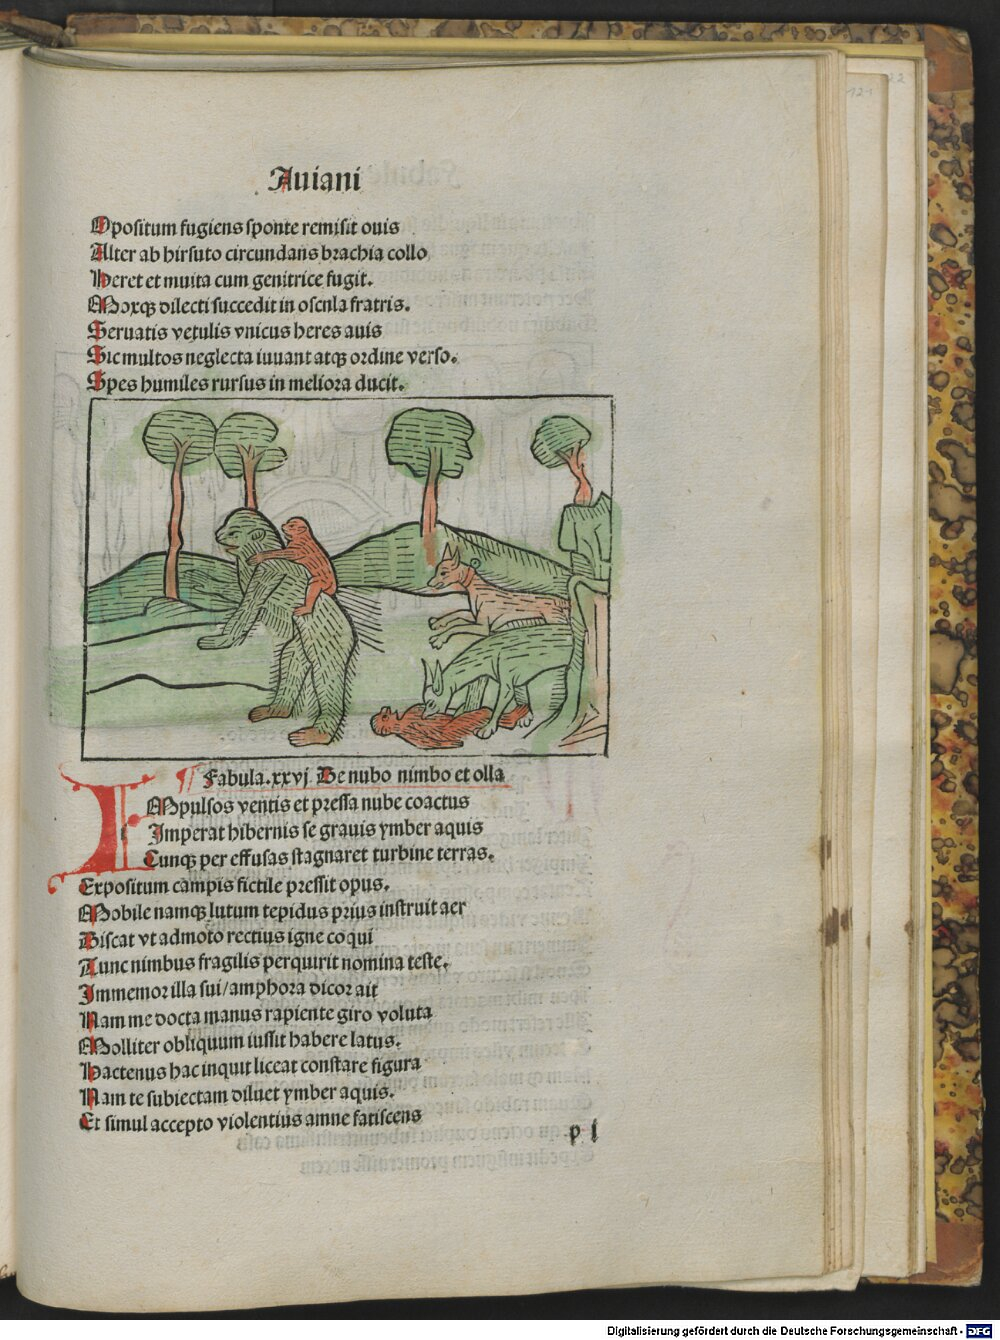 Auiani
Opositum fugiens sponte remisit ouis
Alter ab hirsuto circundans brachia collo
Heret et muita cum genitrice fugit.
Moxqꝫ dilecti succedit in oscula fratris.
Seruatis vetulis vnicus heres auis
Sic multos neglecta iuuant atqꝫ ordine verso.
Spes humiles rursus in meliora ducit.
¶ Fabula.xxvj De nubo nimbo et olla
IMpulsos ventis et pressa nube coactus
Imperat hibernis se grauis ymber aquis
Cunqꝫ per effusas stagnaret turbine terras.
Expositum campis fictile pressit opus.
Mobile namqꝫ lutum tepidus prius instruit aer
Discat vt admoto rectius igne coqui
Tunc nimbus fragilis perquirit nomina teste.
Immemor illa sui/amphora dicor ait
Nam me docta manus rapiente giro voluta
Molliter obliquum iussit habere latus.
Hactenus hac inquit liceat constare figura
Nam te subiectam diluet ymber aquis.
Et simul accepto violentius amne fatiscens
p j
Digitalisierung gefördert durch die Deutsche Forschungsgemeinschaft - DFG